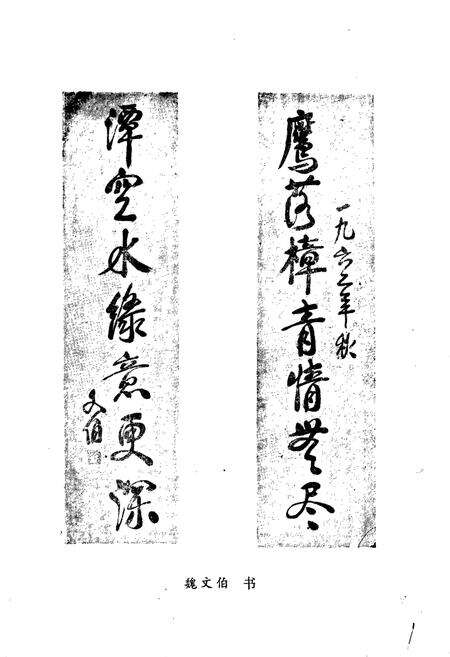 鷹落樟青情無尽
一九六二年秋
潭空水绿意更深
文伯
魏文伯 书
1